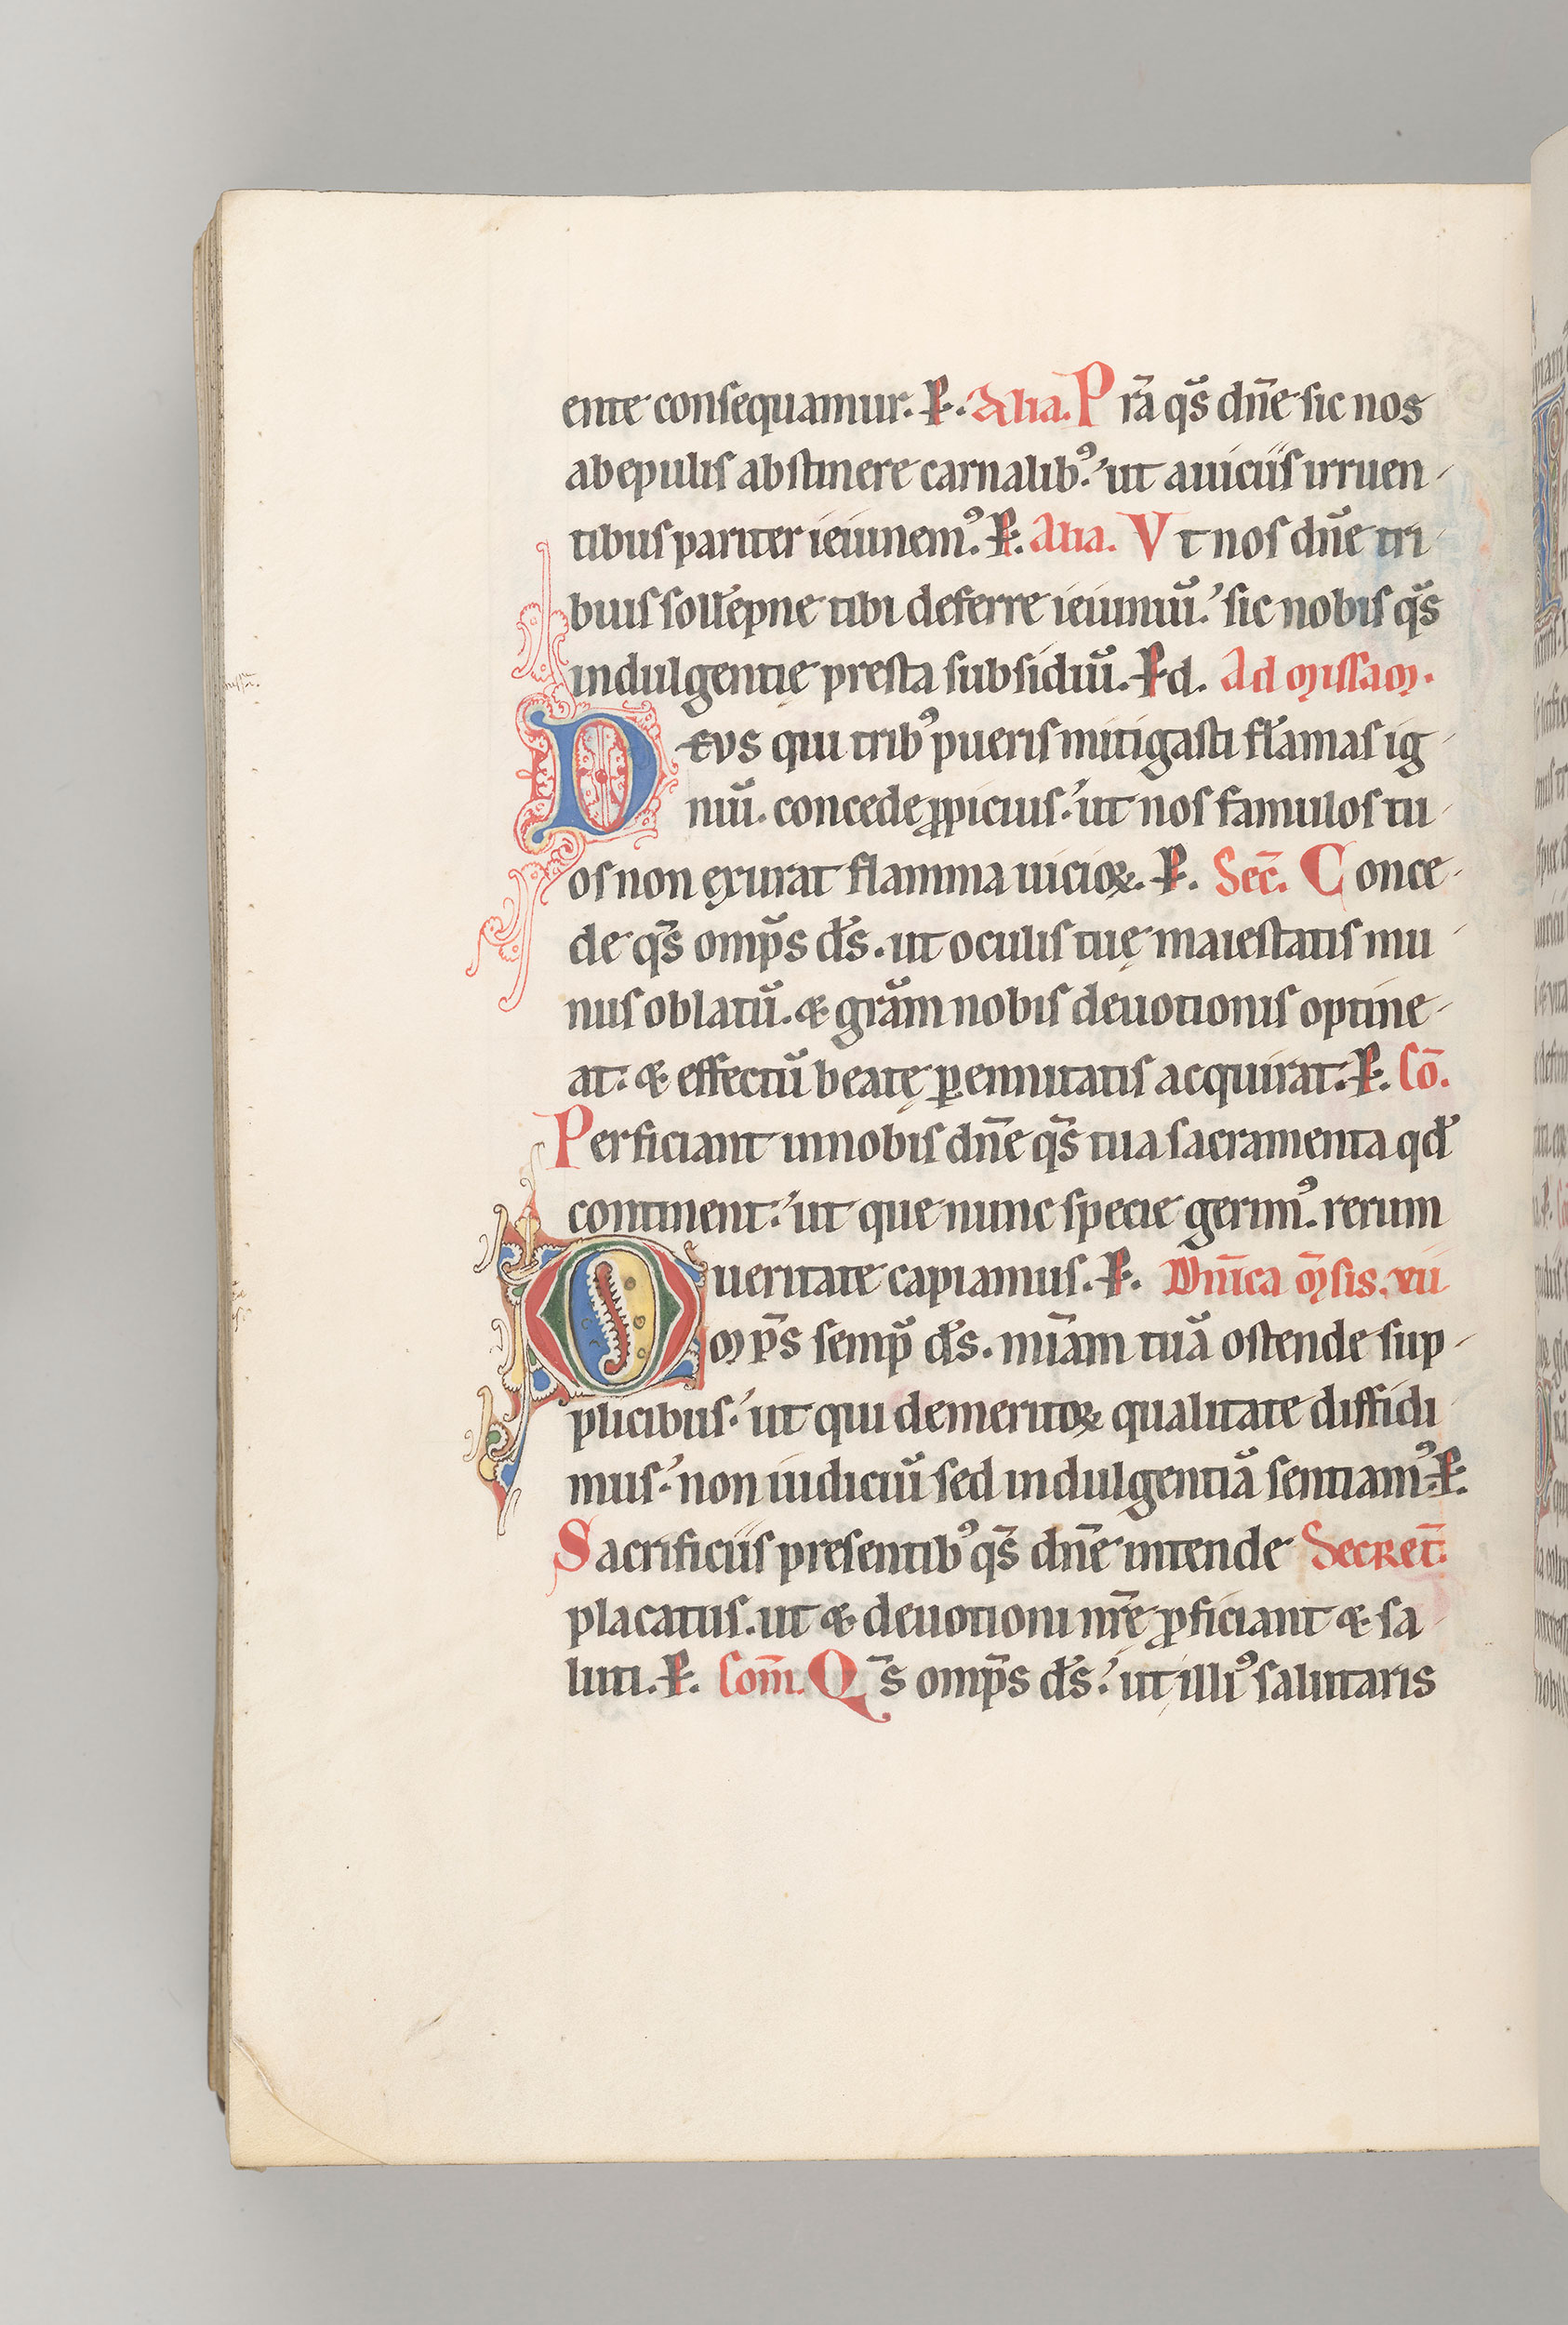 ente consequamur. P. Alia. Prā qs̄ dn̄e sic nos
ab epulis abstinere carnalibꝰ. ut a uiciis irruen
tibus pariter ieiunemꝰ. P. Alia. Vt nos dn̄e tri
buis soll̄epne tibi deferre ieiuniū. sic nobis qs̄
indulgentię presta subsidiū. Pd. Ad missam.
Deus qui tribꝰ pueris mitigasti fl̄amas ig
niū. concede ꝓpicius. ut nos famulos tu
os non exurat flamma uicioꝝ. P. Sec̄. Conce
de qs̄ omp̄s d̄s. ut oculis tuę maiestatis mu
nus oblatū. & grām nobis deuotionis optine
at. & effectū beatę ꝑennitatis acquirat. P. Cō.
Perficiant in nobis dn̄e qs̄ tua sacramenta qđ
continent. ut que nunc specie gerimꝰ. rerum
ueritate capiamus. P. Dn̄ica m̄sis. vii
Omp̄s semp̄ d̄s. mīam tuā ostende sup
plicibus. ut qui de meritoꝝ qualitate diffidi
mus. non iudiciū sed indulgentiā sentiamꝰ. P.
Sacrificiis presentibꝰ qs̄ dn̄e intende Secret̄.
placatus. ut & deuotioni nr̄ę ꝓficiant & sa
luti. P. Com̄. Qs̄ omp̄s d̄s. ut illiꝰ salutaris